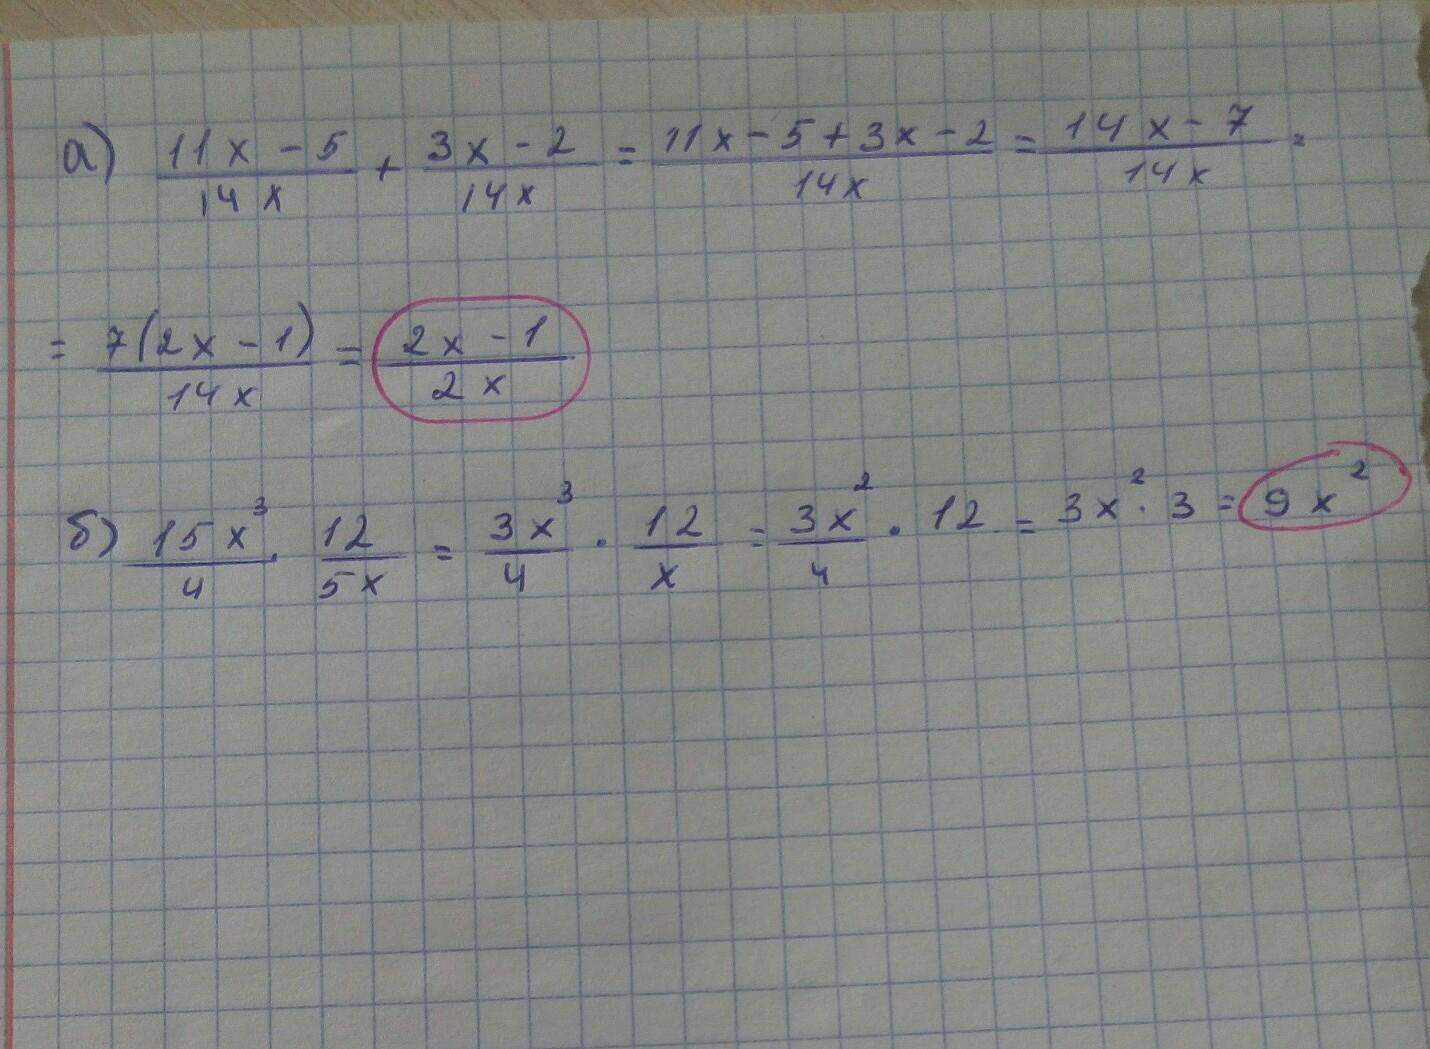 а) (11x - 5)/(14x) + (3x - 2)/(14x) = (11x - 5 + 3x - 2)/(14x) = (14x - 7)/(14x) =
= 7(2x - 1)/(14x) = (2x - 1)/(2x)
б) (15x³)/4 · 12/(5x) = (3x³)/4 · 12/x = (3x²)/4 · 12 = 3x² · 3 = 9x²